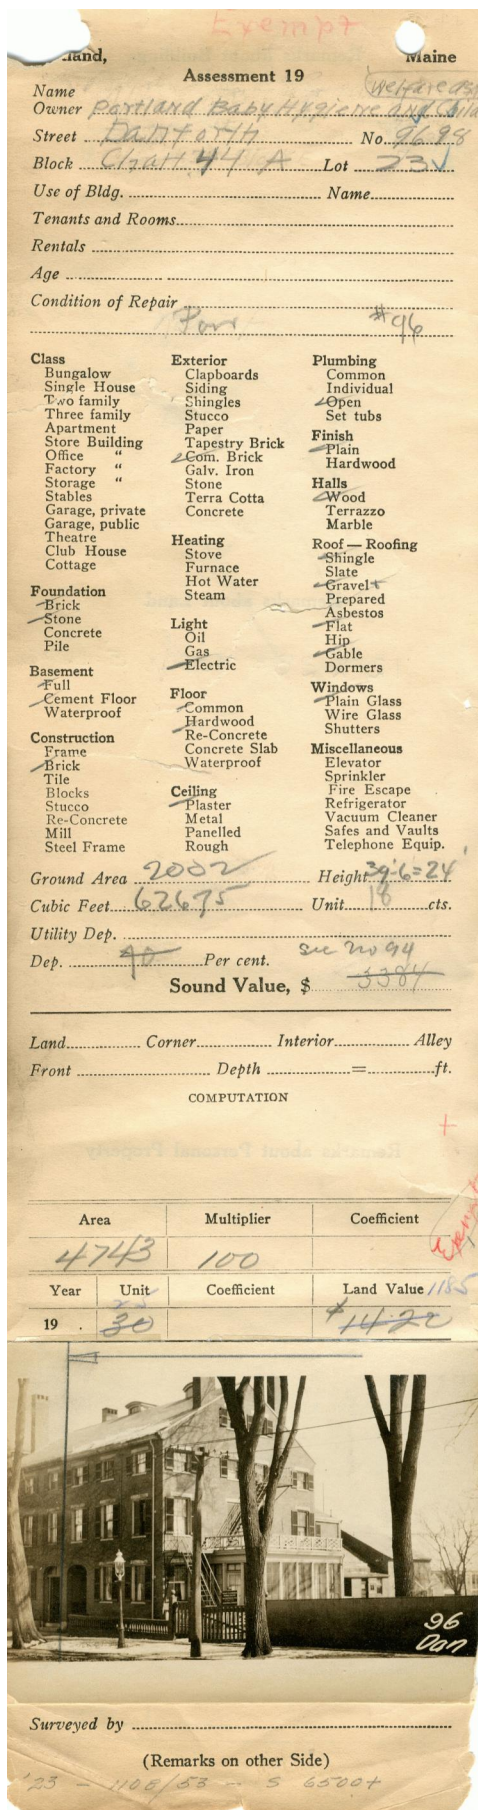 Exempt
land, Maine
Assessment 19
Welfare ass
Name
Owner Portland Baby Hygiene and Child
Street Danforth No. 96 98
Block Chart 44 A Lot 23
Use of Bldg. Name
Tenants and Rooms
Rentals
Age
Condition of Repair
#96
Class
Bungalow
Single House
Two family
Three family
Apartment
Store Building
Office "
Factory "
Storage "
Stables
Garage, private
Garage, public
Theatre
Club House
Cottage
Foundation
Brick
Stone
Concrete
Pile
Basement
Full
Cement Floor
Waterproof
Construction
Frame
Brick
Tile
Blocks
Stucco
Re-Concrete
Mill
Steel Frame
Exterior
Clapboards
Siding
Shingles
Stucco
Paper
Tapestry Brick
Com. Brick
Galv. Iron
Stone
Terra Cotta
Concrete
Heating
Stove
Furnace
Hot Water
Steam
Light
Oil
Gas
Electric
Floor
Common
Hardwood
Re-Concrete
Concrete Slab
Waterproof
Ceiling
Plaster
Metal
Panelled
Rough
Plumbing
Common
Individual
Open
Set tubs
Finish
Plain
Hardwood
Halls
Wood
Terrazzo
Marble
Roof — Roofing
Shingle
Slate
Gravel +
Prepared
Asbestos
Flat
Hip
Gable
Dormers
Windows
Plain Glass
Wire Glass
Shutters
Miscellaneous
Elevator
Sprinkler
Fire Escape
Refrigerator
Vacuum Cleaner
Safes and Vaults
Telephone Equip.
Ground Area 2002 Height 39'-6=24'
Cubic Feet 62675 Unit 18 cts.
Utility Dep.
Dep. 70 Per cent. See no 94
Sound Value, $ 3384
Land Corner Interior Alley
Front Depth = ft.
COMPUTATION
+
Exempt
Area Multiplier Coefficient
4743 100
Year Unit Coefficient Land Value 1185
19 . 25 30 $1422
96
Dan
Surveyed by
(Remarks on other Side)
'23 - 1108/53 - S 6500+